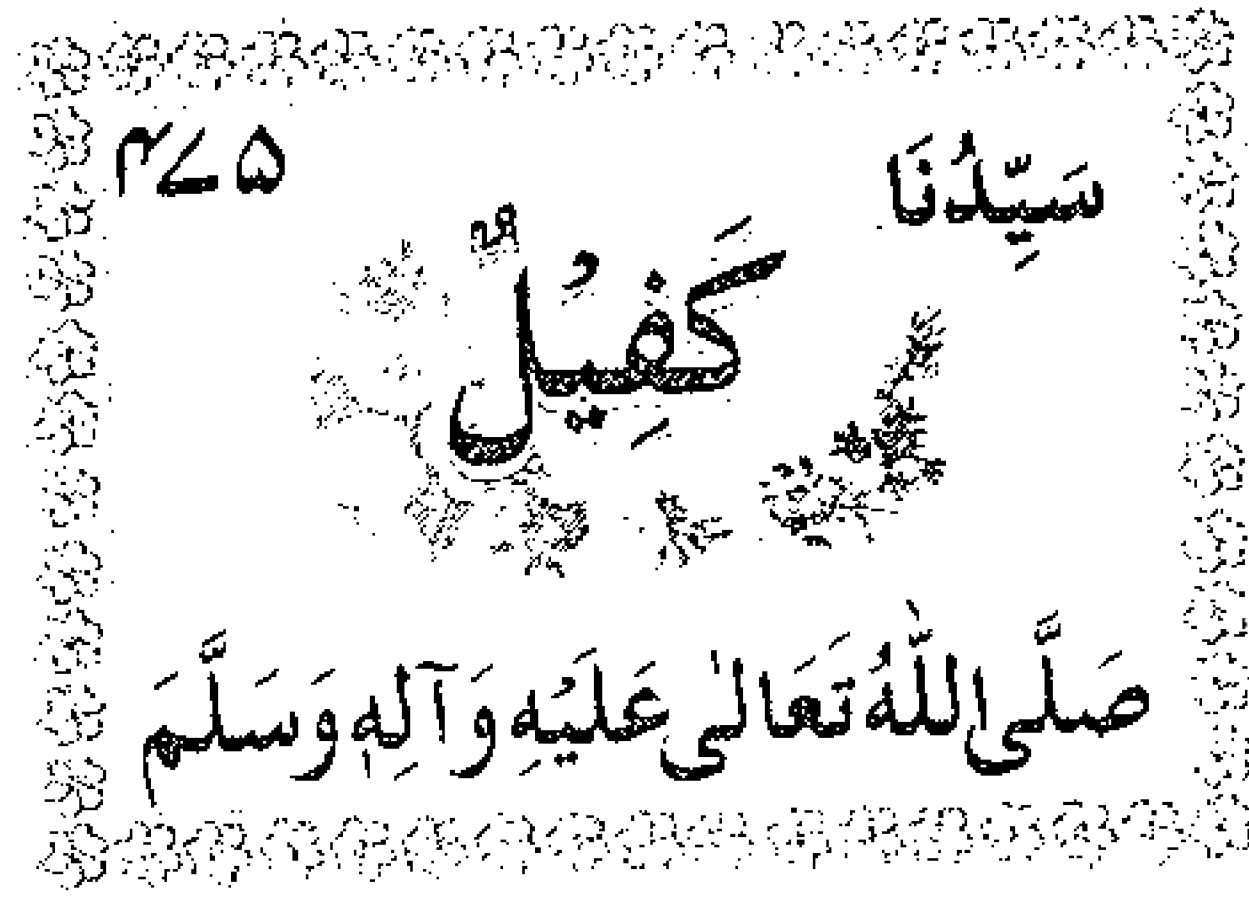 سَيِّدُنَا ۴۷۵
كَفِيْلٌ
صَلَّى اللّٰهُ تَعَالٰى عَلَيْهِ وَآلِهٖ وَسَلَّمَ